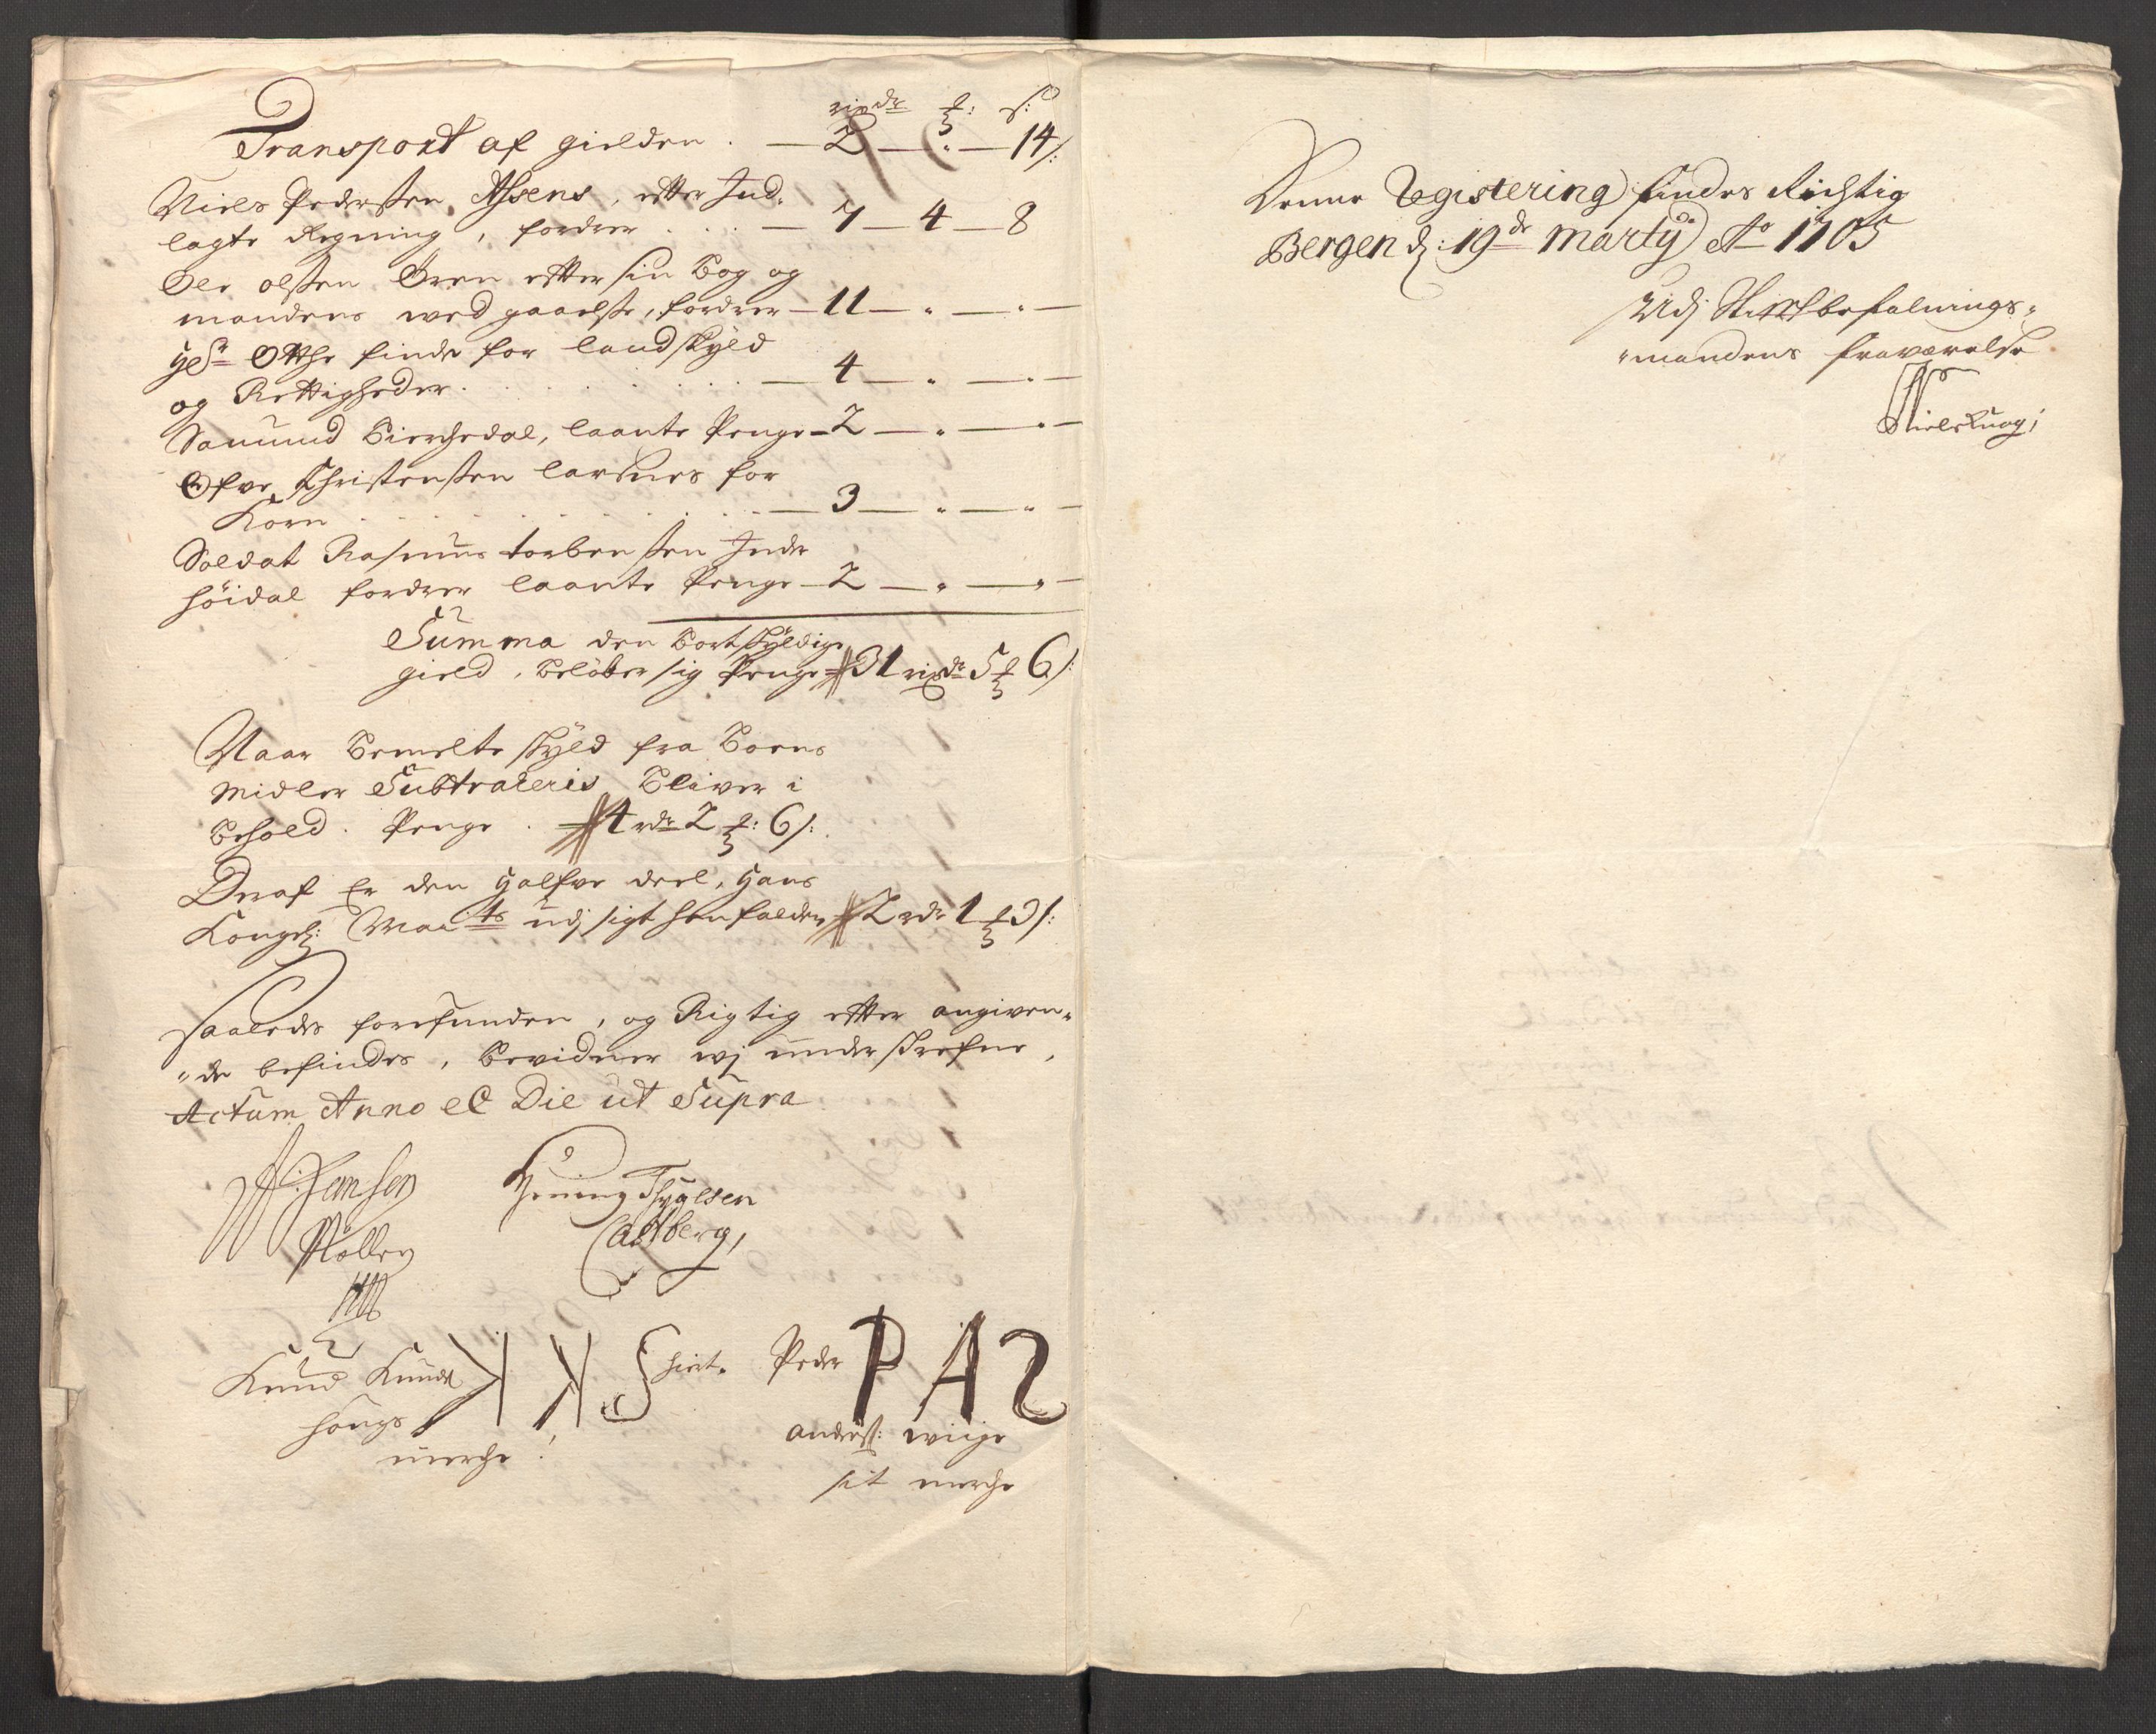 rixdr ʒ: s:
Transport af gielden . — 2 — „ — 14 s:
Niels Pedersen Assens, efter Ind,
lagte Regning, fordrer . . . — 7 — 4 — 8
Ole olssen Øren efter sin bog og
mandens wed gaaelse, fordrer — 11 — „ — „ —
Hr Otthe finde for landskyld
og Rettigheder . . . . . . — 4 — „ — „ —
Samund bierchedal, laante Penge — 2 — „ — „ —
Christensen for
Korn . . . . . . . . — 3 — „ — „ —
Soldat Rasmus torbensen Inde
höidal fordrer laante Penge — 2 — „ — „ —
Summa den bortskyldige
gield, belöber sig Penge 31 rixdr 5 ʒ 6 s:
Naar bemelte skyld fra boens
midler Subtraheris bliver i
behold . Penge . 4 rdr 2 ʒ: 6 s:
Deraf Er den halfve deel, hans
Kongel: Mayts udj sigt henfalden 2 rdr 1 ʒ 3 s:
Saaledes forefunden, og Rigtig efter angiven„
„de befindes, bevidner wj underskrefne,
Actum Anno et Die ut Supra
Jensen
Möller
Hening Thygesen
Castberg,
Knud Knuds
K K S hiert. Peder P A S
hougs
merche !
anders: wiige
sit merche
Denne Registering findes Richtig
Bergen d: 19de Martij Ao 1705
Udj Stiftbefalnings„
„mandens fraværelse
Niels Knag;